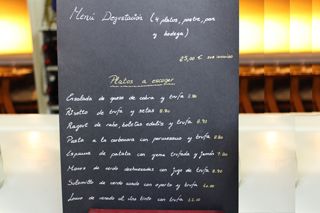 Menú Degustación (4 platos, postre, pan
y bodega)
25,00 € IVA incluido
Platos a escoger
Ensalada de queso de cabra y trufa
Risotto de trufa y setas 8.90
Ragout de rabo, boletus edulis y trufa
Pasta a la carbonara con parmesano y trufa 8.90
Espuma de patata con yema trufada y jamón 7.00
Manos de cerdo deshuesadas con jugo de trufa 8.90
Solomillo de cerdo asado con oporto y trufa
Lomo de venado al vino tinto con trufa